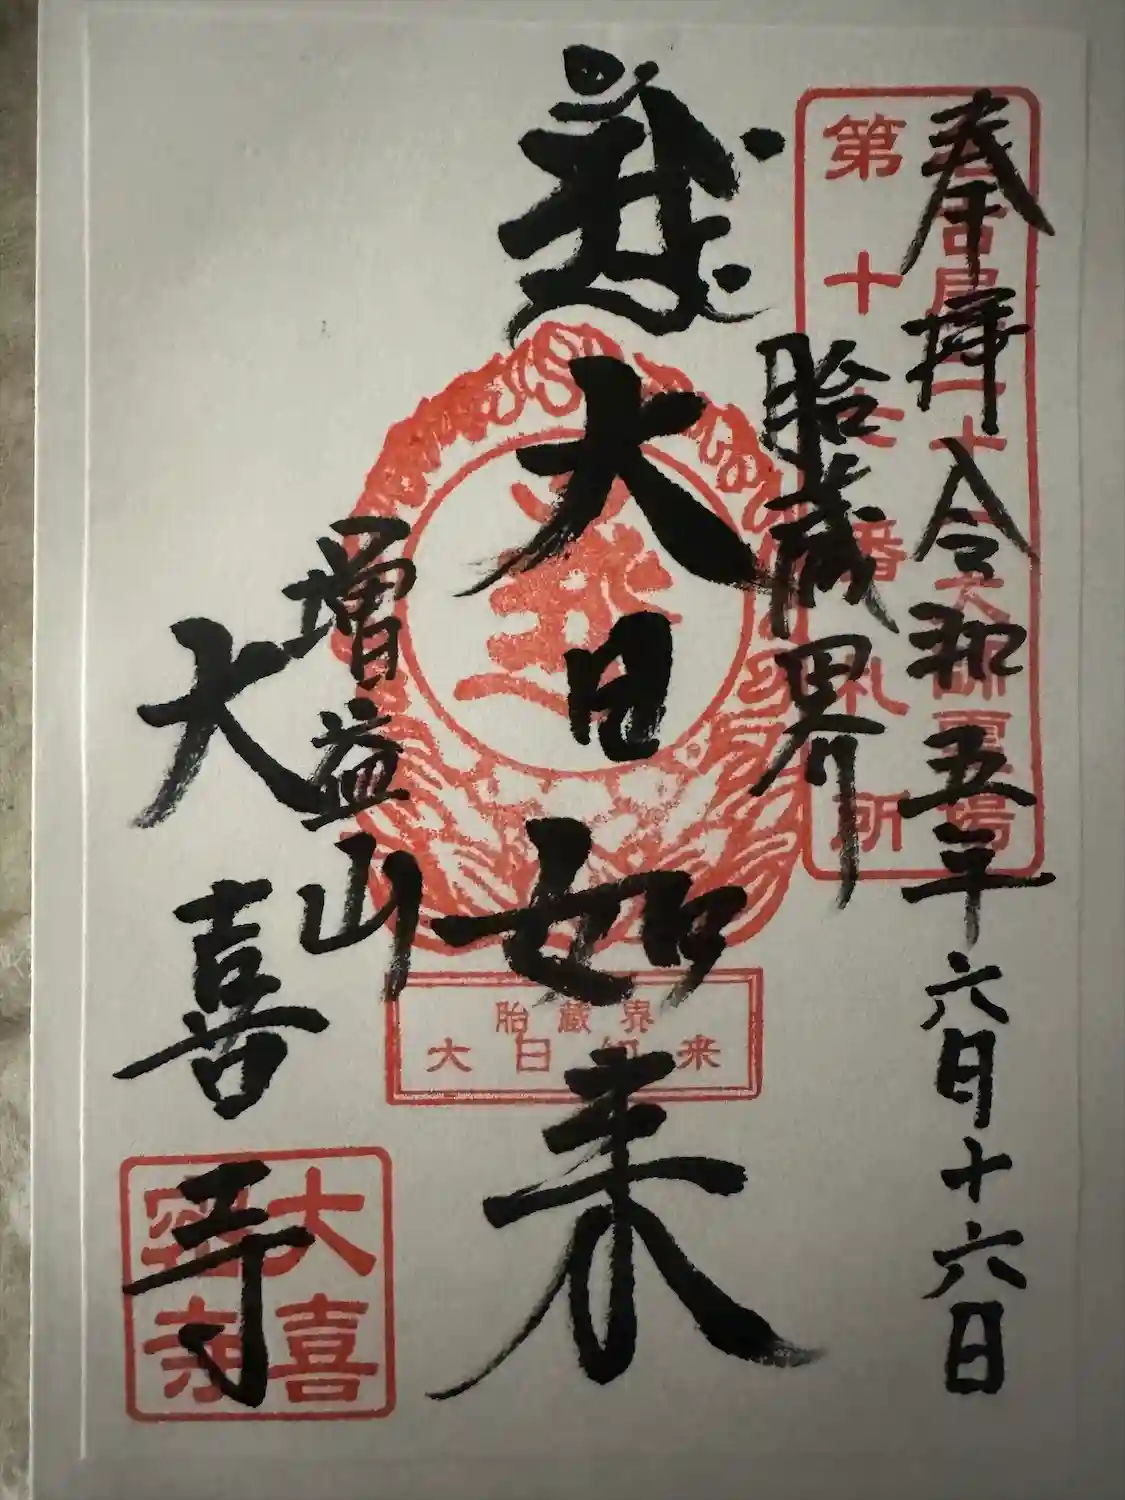 奉拝 令和五年六月十六日
胎蔵界
大日如来
増益山
大喜寺
第十七番札所
胎蔵界
大日如来
大喜